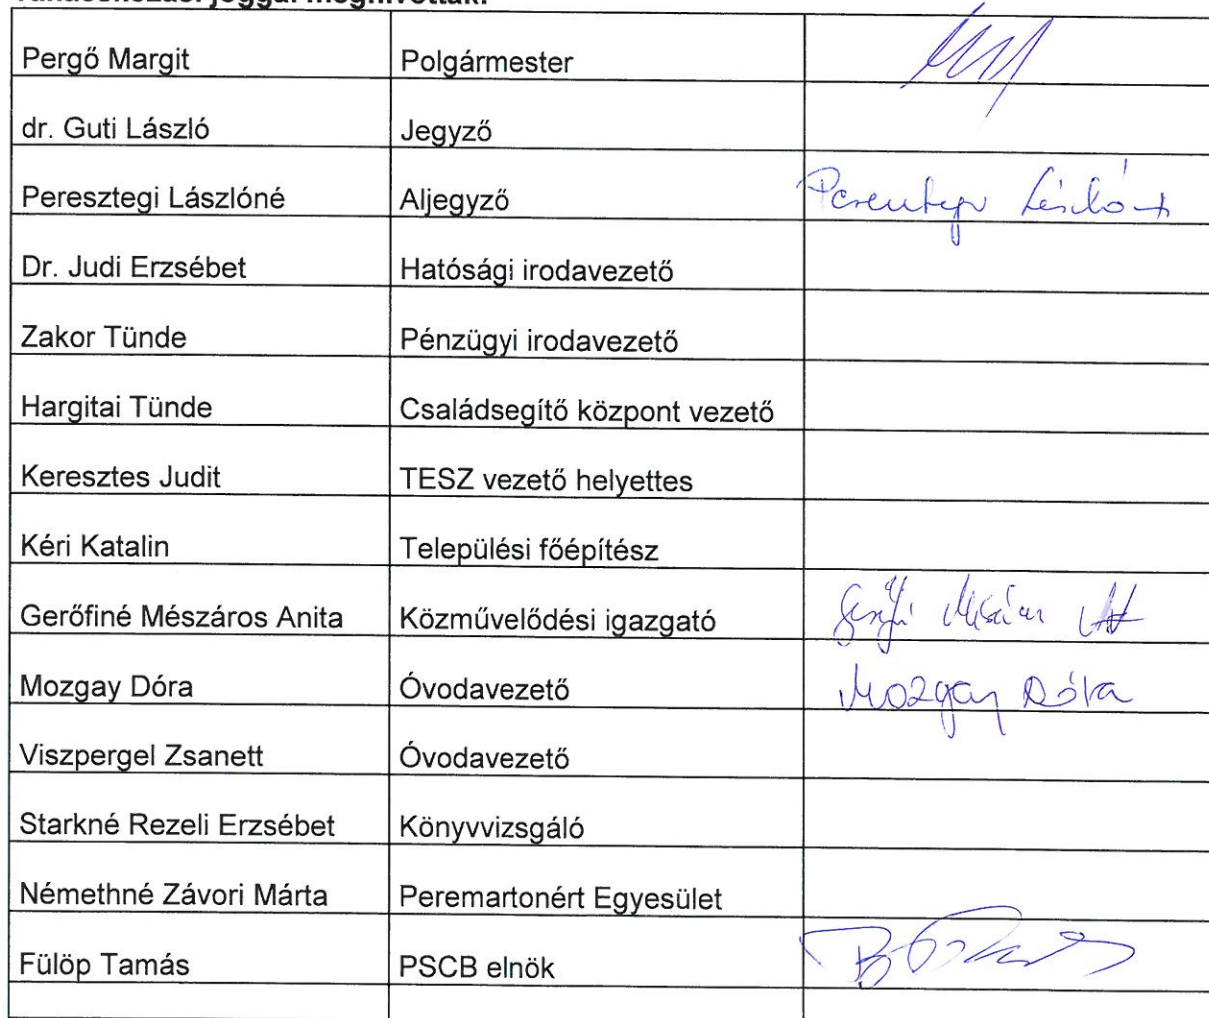 Tanácskozási joggal meghívottak:
Pergő Margit Polgármester
dr. Guti László Jegyző
Peresztegi Lászlóné Aljegyző
Dr. Judi Erzsébet Hatósági irodavezető
Zakor Tünde Pénzügyi irodavezető
Hargitai Tünde Családsegítő központ vezető
Keresztes Judit TESZ vezető helyettes
Kéri Katalin Települési főépítész
Gerőfiné Mészáros Anita Közművelődési igazgató
Mozgay Dóra Óvodavezető Mozgay Dóra
Viszpergel Zsanett Óvodavezető
Starkné Rezeli Erzsébet Könyvvizsgáló
Némethné Závori Márta Peremartonért Egyesület
Fülöp Tamás PSCB elnök